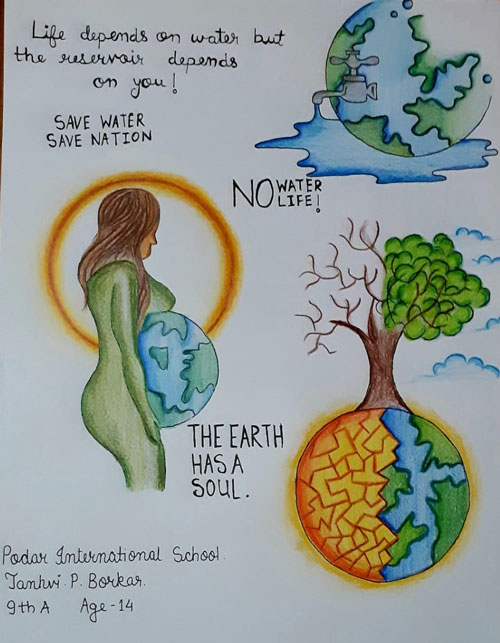 Life depends on water but
the reservoir depends
on you!
SAVE WATER
SAVE NATION
NO WATER
LIFE!
THE EARTH
HAS A
SOUL.
Podar International School.
Tanhvi. P. Borkar.
9th A Age-14